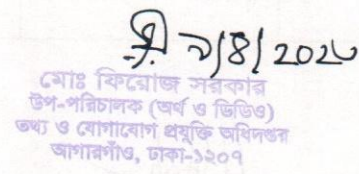 ৯/৪/২০২৬
মোঃ ফিরোজ সরকার
উপ-পরিচালক (অর্থ ও ডিডিও)
তথ্য ও যোগাযোগ প্রযুক্তি অধিদপ্তর
আগারগাঁও, ঢাকা-১২০৭